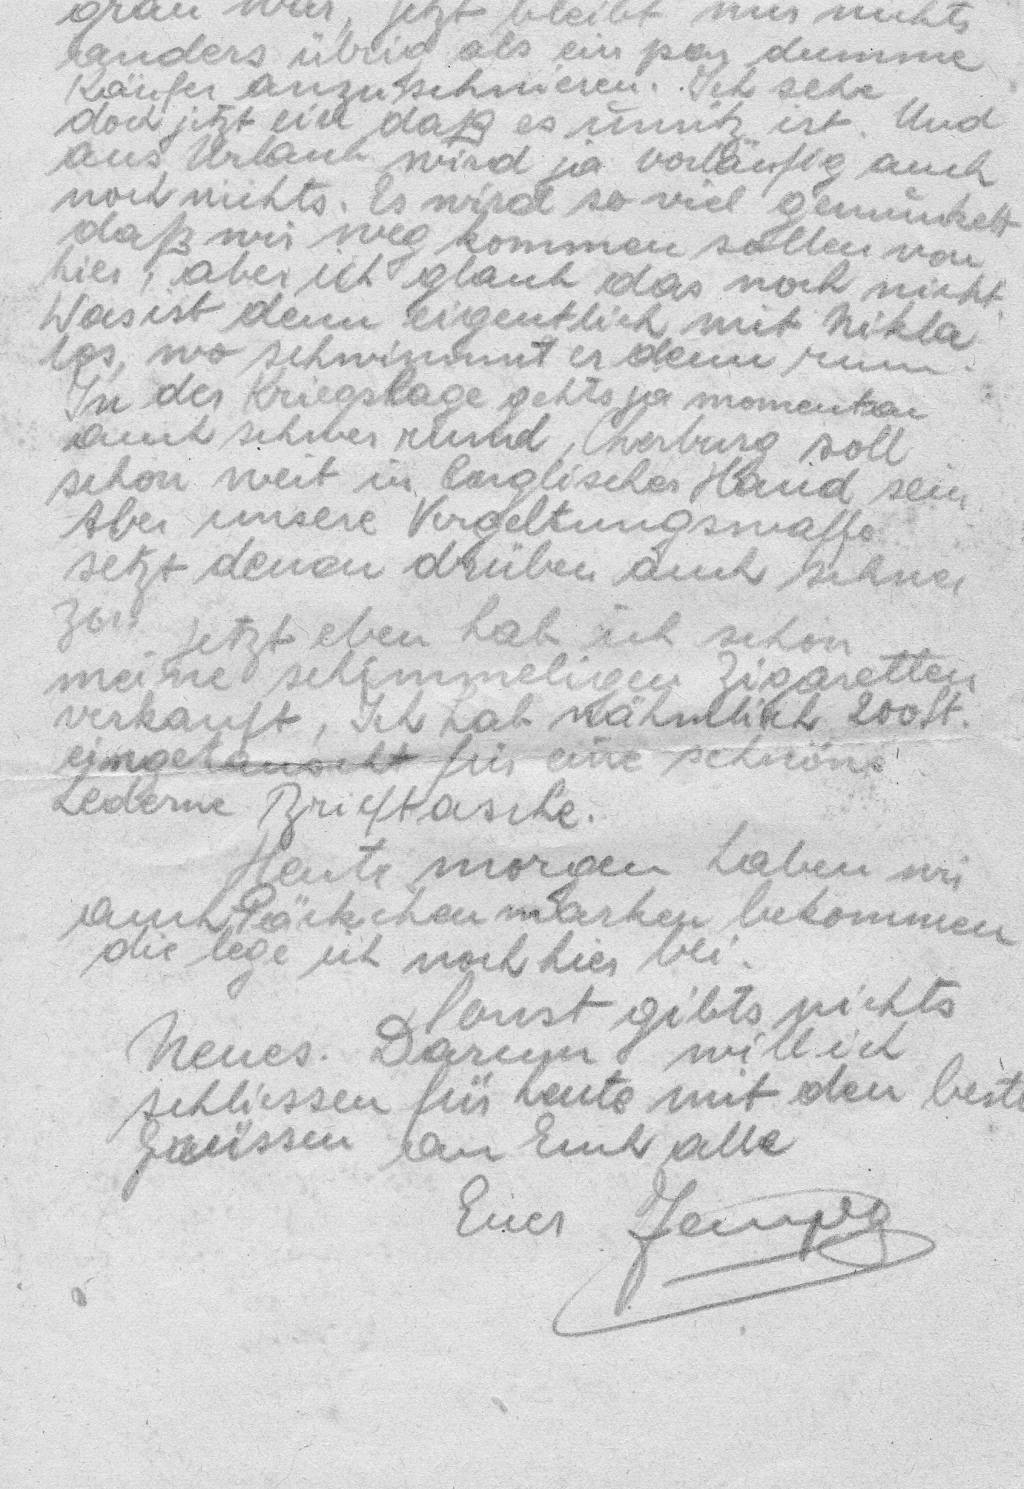 grau war, jetzt bleibt mir nichts
anders übrig als ein par dumme
Käufer anzuschmieren. Ich sehe
doch jetzt ein daß es unnütz ist. Und
aus Urlaub wird ja vorläufig auch
noch nichts. Es wird so viel gemunkelt
daß wir weg kommen sollen von
hier, aber ich glaub das noch nicht.
Was ist denn eigentlich mit Nikla
los, wo schwimmt er denn rum.
In der Kriegslage gehts ja momentan
auch schwer rund, Cherburg soll
schon weit in Englischer Hand sein
Aber unsere Vergeltungswaffe
setzt denen drüben auch schwer
zu.
Jetzt eben hab ich schon
meine schimmeligen Zigaretten
verkauft, Ich hab nähmlich 200 St.
eingetauscht für eine schöne
Lederne Brieftasche.
Heute morgen haben wir
auch Päckchen marken bekommen
die lege ich noch hier bei.
Sonst gibts nichts
Neues. Darum will ich
schliessen für heute mit den beste
Grüssen an Euch alle
Euer